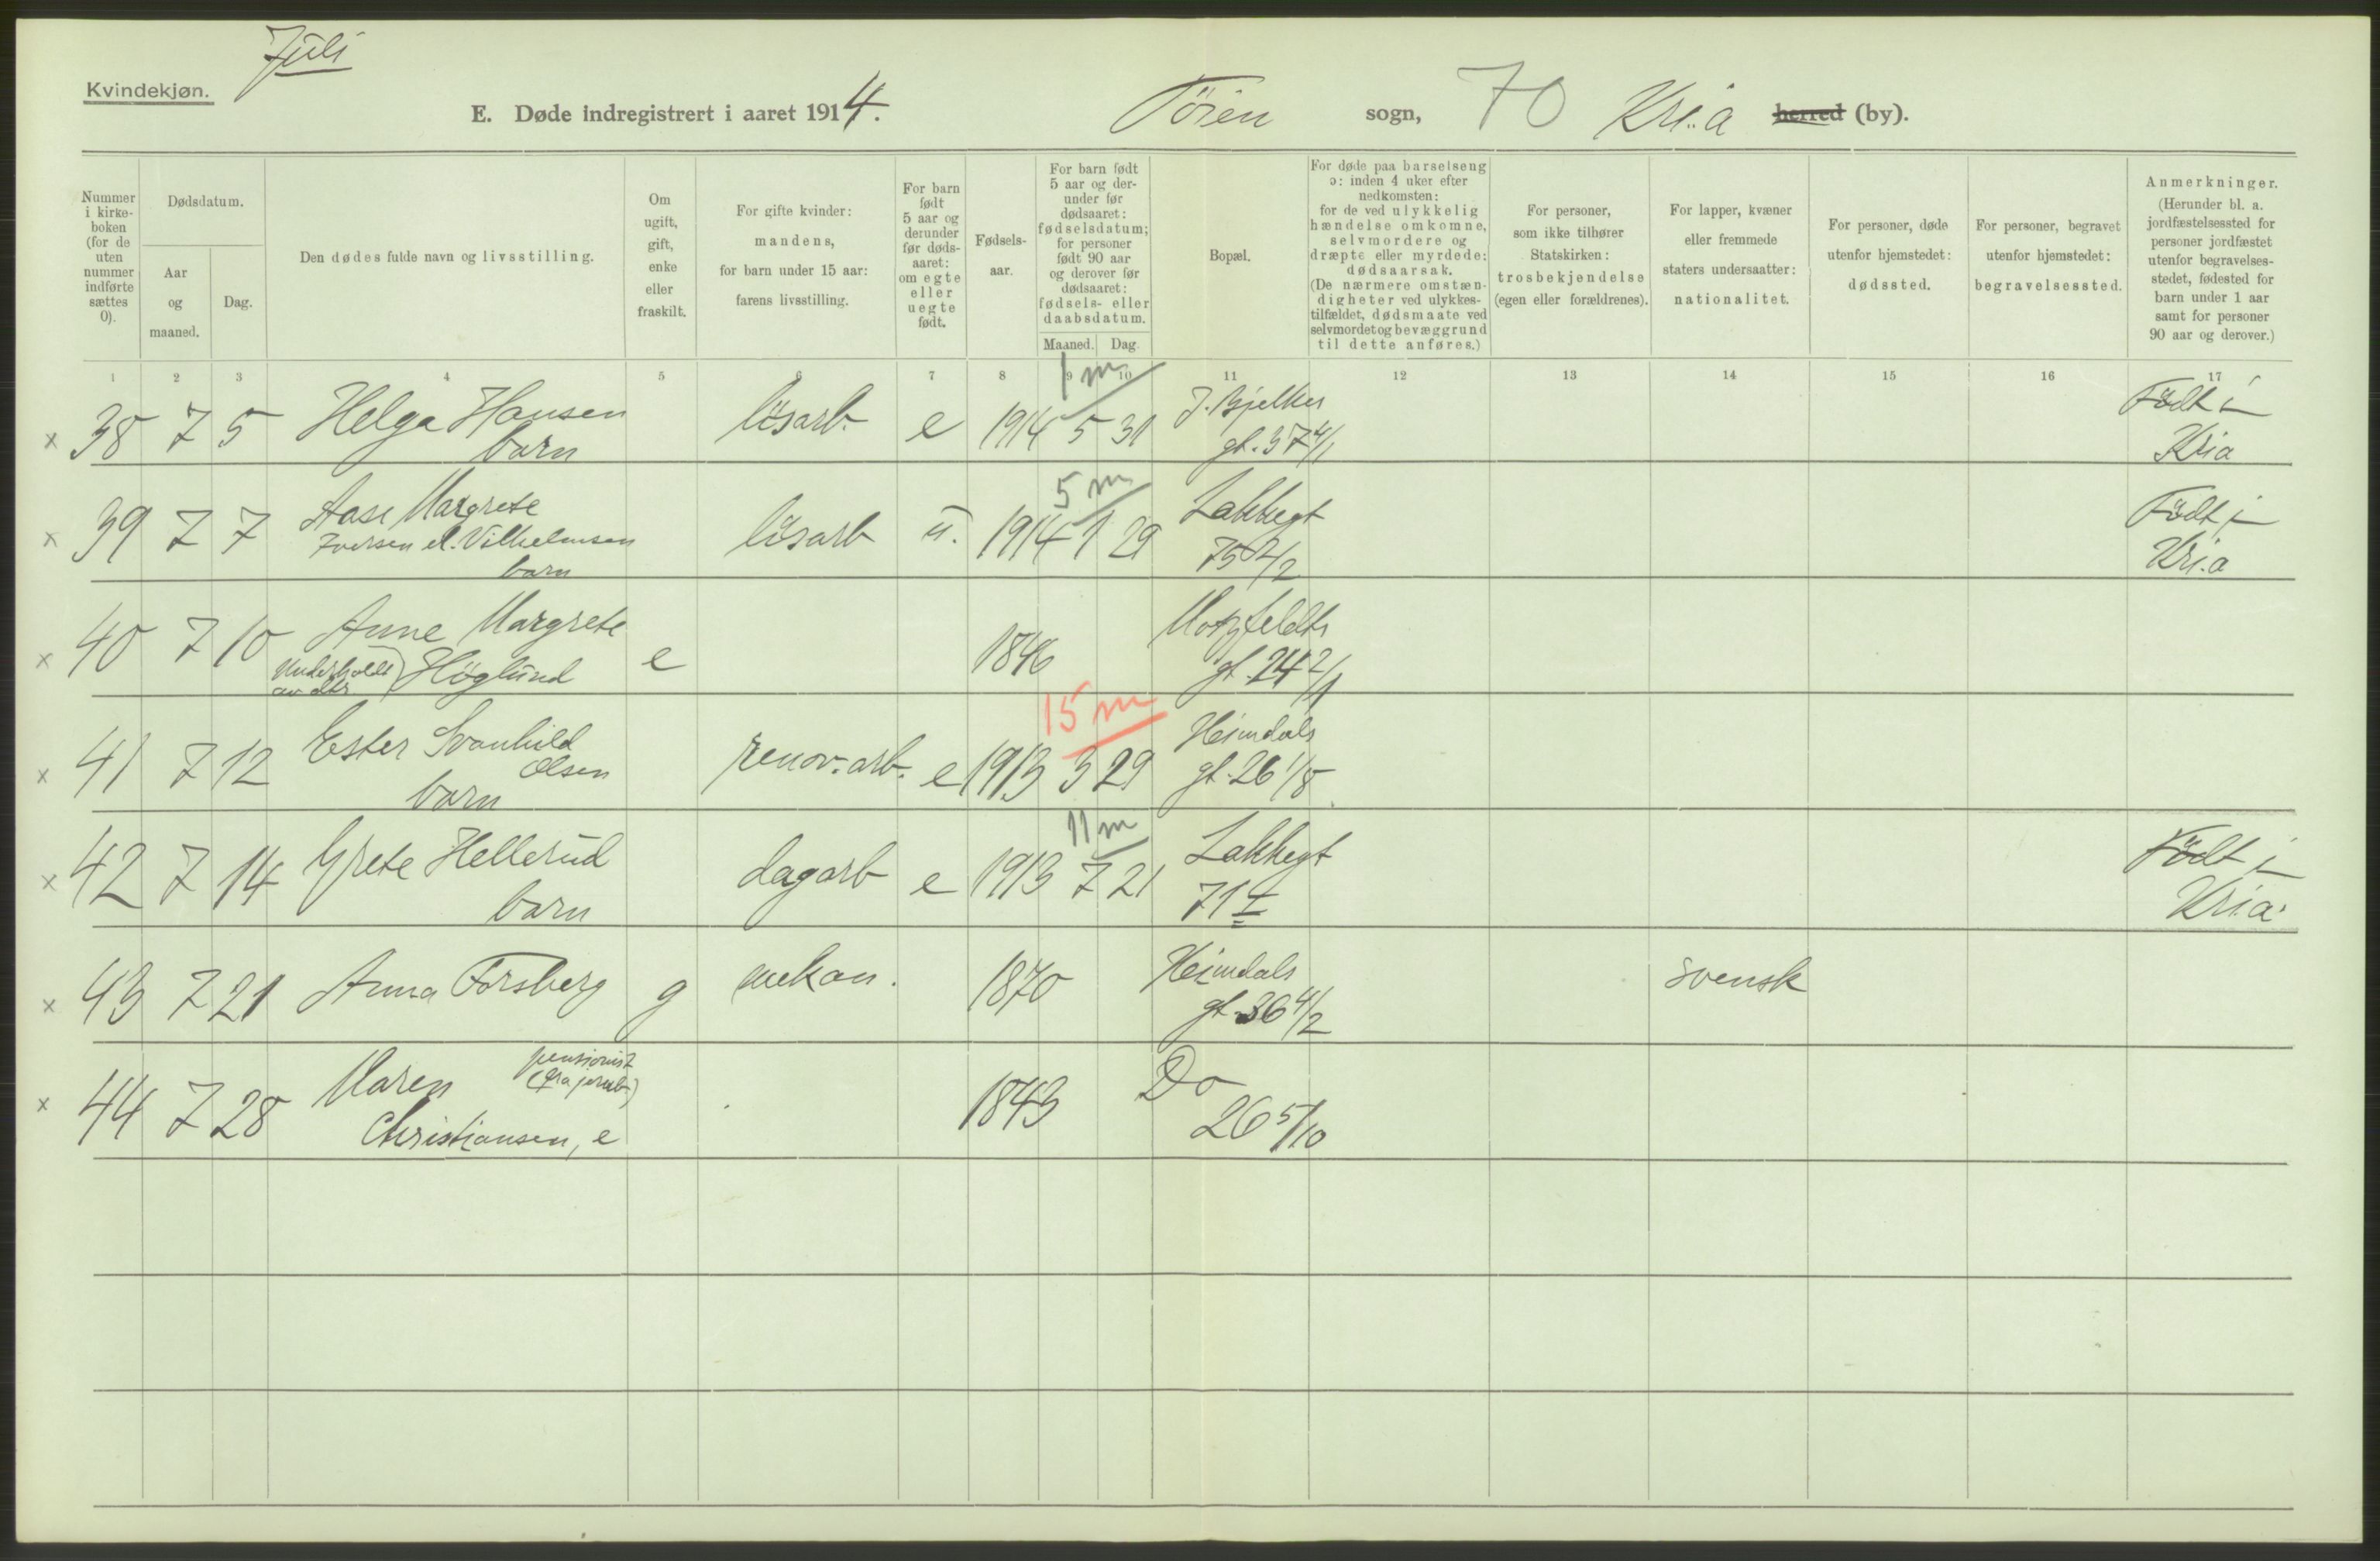 Juli
Kvindekjøn.
E. Døde indregistrert i aaret 1914. Töien sogn, 70 Kri.a herred (by).
Nummer i kirke-boken (for de uten nummer indførte sættes 0).
Dødsdatum.
Aar og maaned.
Dag.
Den dødes fulde navn og livsstilling.
Om ugift, gift, enke eller fraskilt.
For gifte kvinder: mandens, for barn under 15 aar: farens livsstilling.
For barn født 5 aar og derunder før døds-aaret: om egte eller uegte født.
Fødsels-aar.
For barn født 5 aar og der-under før dødsaaret: fødselsdatum; for personer født 90 aar og derover før dødsaaret: fødsels- eller daabsdatum.
Maaned. Dag.
Bopæl.
For døde paa barselseng ɔ: inden 4 uker efter nedkomsten: for de ved ulykkelig hændelse omkomne, selvmordere og dræpte eller myrdede: dødsaarsak. (De nærmere omstæn-digheter ved ulykkes-tilfældet, dødsmaate ved selvmordet og bevæggrund til dette anføres.)
For personer, som ikke tilhører Statskirken: trosbekjendelse (egen eller forældrenes).
For lapper, kvæner eller fremmede staters undersaatter: nationalitet.
For personer, døde utenfor hjemstedet: dødssted.
For personer, begravet utenfor hjemstedet: begravelsessted.
Anmerkninger. (Herunder bl. a. jordfæstelsessted for personer jordfæstet utenfor begravelses-stedet, fødested for barn under 1 aar samt for personer 90 aar og derover.)
1 2 3 4 5 6 7 8 9 10 11 12 13 14 15 16 17
1 m
x 38 7 5 Helga Hansen lösarb. e 1914 5 31 J. Bjelkes Födt i
barn gt. 37 4/1 Kria
5 m
x 39 7 7 Aase Margrete lösarb u. 1914 1 29 Lakkegt Födt i
Iversen el. Vilhelmsen 75 2/2 Kri.a
barn
x 40 7 10 Anne Margrete e 1846 Motzfeldts
Underholdt av dtr.) Höglund gt. 24 2/1
15 m
x 41 7 12 Ester Svanhild renov. arb. e 1913 3 29 Heimdals
Olsen gt. 26 1/8
barn
11 m
x 42 7 14 Grete Hellerud dagarb e 1913 7 21 Lakkegt Födt i
barn 71 Kri.a.
x 43 7 21 Anna Forsberg g mekan. 1870 Heimdals svensk
gt. 36 4/2
x 44 7 28 Maren pensionist 1843 Do
Christiansen, e 26 5/10